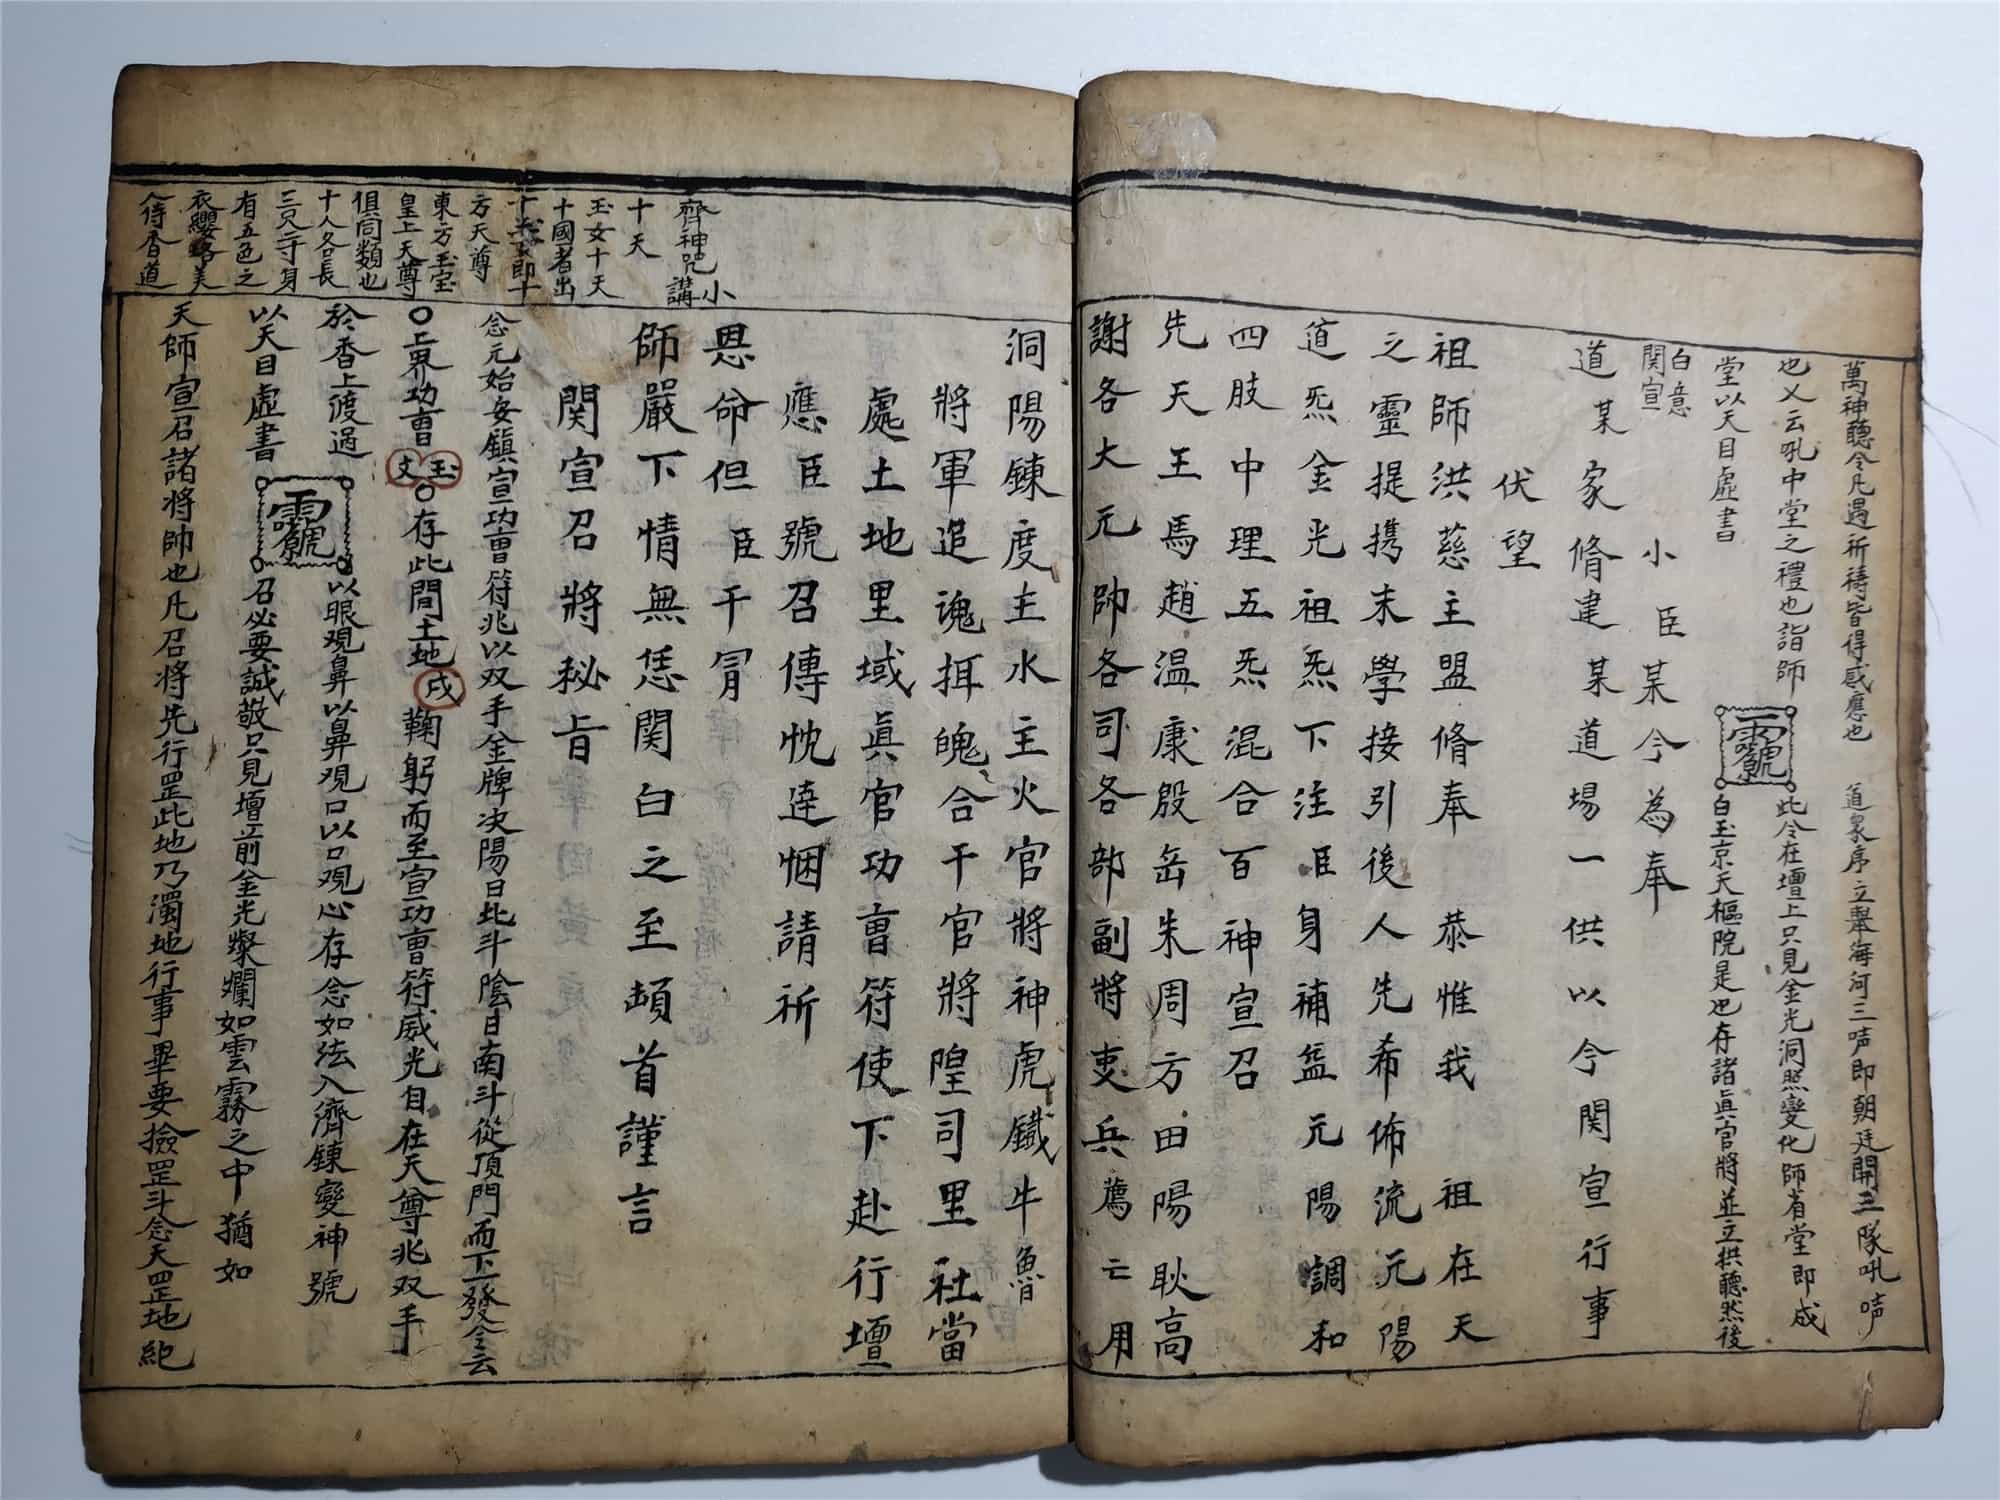 萬神聽令凡遇祈禱皆得感應也 道衆序立舉海河三吽即朝廷開三隊吼吽
也又云吼中堂之禮也詣師 此令在壇上只見金光洞照變化師省堂即成
堂以天目虛書 白玉京天樞院是也存諸眞官將並立拱聽然後
白意
関宣 小臣某今為奉
道某家脩建某道場一供以今関宣行事
伏望
祖師洪慈主盟脩奉 恭惟我 祖在天
之靈提携末學接引後人先希佈流元陽
道炁金光祖炁下注臣身補益元陽調和
四肢中理五炁混合百神宣召
先天王馬趙温康殷岳朱周方田陽耿高
謝各大元帥各司各部副將吏兵薦亡用
洞陽鍊度主水主火官將神虎鐵牛魯
將軍追魂揖魄合干官將隍司里社當
處土地里域眞官功曹符使下赴行壇
應臣號召傳忱達悃請祈
恩命但臣干冒
師嚴下情無恁関白之至頓首謹言
関宣召將秘旨
念元始安鎮宣功曹符兆以双手金牌决陽日北斗陰日南斗從頂門而下發令云
〇上界功曹玉文〇存此間土地戌鞠躬而至宣功曹符威光自在天尊兆双手
於香上渡過 以眼观鼻以鼻观口以口观心存念如法入濟鍊變神號
以天目虛書 召必要誠敬只見壇前金光燦爛如雲霧之中猶如
天師宣召諸將帥也凡召將先行罡此地乃濁地行事畢要撿罡斗念天罡地紀
齊神咒 小講
十天
玉女十天
十國者出
即十
方天尊
東方玉宝
皇上天尊
俱同類也
十人各長
三尺寸身
有五色之
衣纓络美
人侍香道